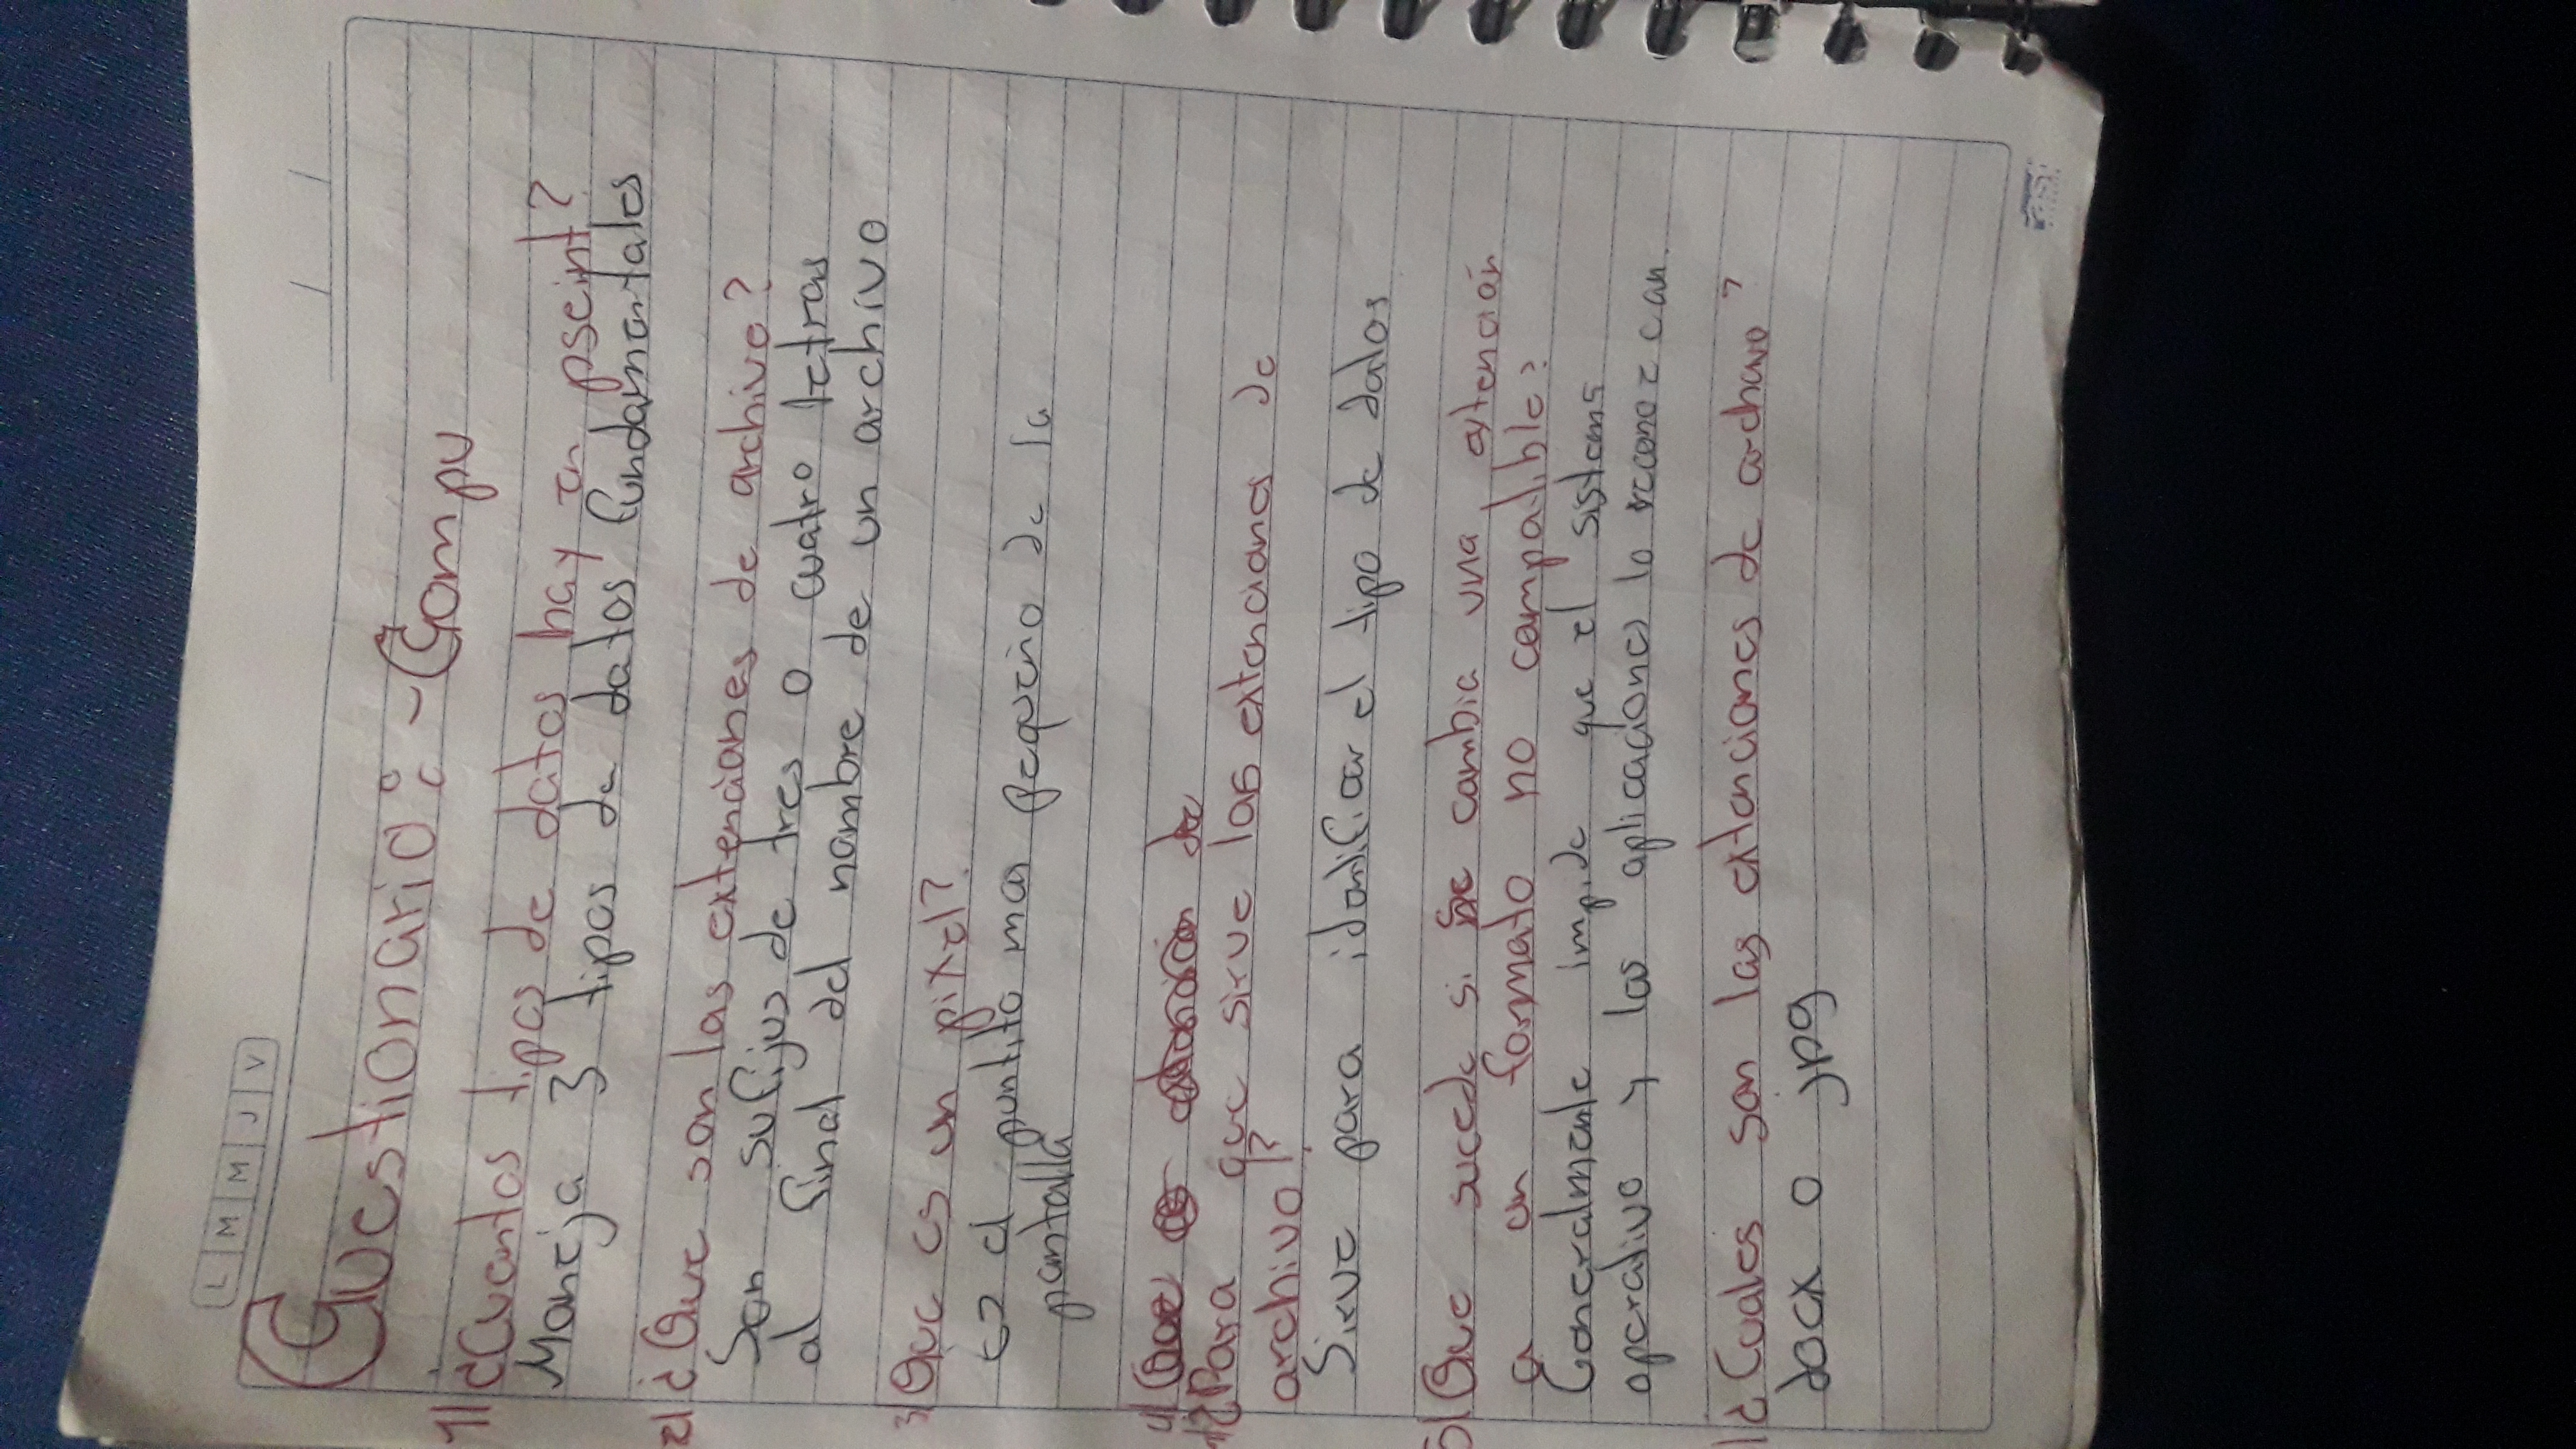 L M M J V
Cuestionario: - Compu
1) ¿Cuantos tipos de datos hay en pseint?
Maneja 3 tipos de datos fundamentales
2) ¿Que son las extenciones de archivo?
Son sufijos de tres o cuatro letras
al final del nombre de un archivo
3) Que es un pixel?
es el puntito mas pequeño de la
pantalla
4)
¿Para que sirve las extenciones de
archivo?
Sirve para identificar el tipo de datos
5) Que sucede si se cambia una extención
a un formato no compatible?
Generalmente impide que el sistema
operativo y las aplicaciones lo reconozcan.
¿Cuales son las extenciones de archivo?
docx o jpg